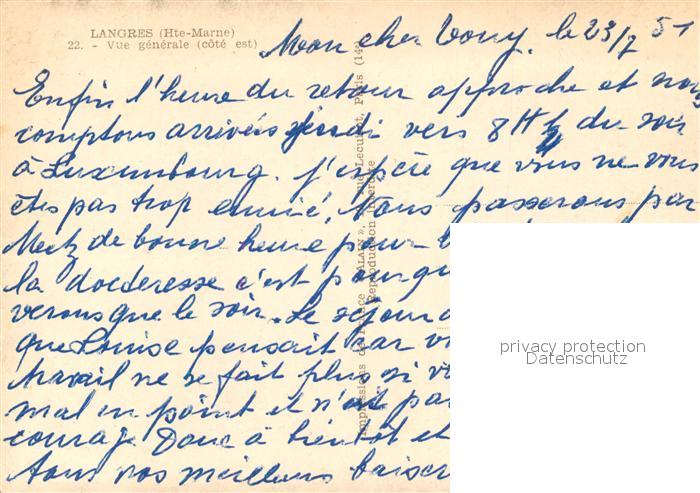 LANGRES (Hte-Marne)
22. - Vue générale (côté est)
Mon cher Tony, le 23/7 51
Enfin l'heure du retour approche et nous
comptons arrivés jeudi vers 8H ½ du soir
à Luxembourg. J'espère que vous ne vous
êtes pas trop ennuié. Nous passerons par
Metz de bonne heure pour
la docteresse c'est pourqu
verons que le soir. Le séjour
que Louise pensait car v
travail ne se fait plus si v
mal en point et n'est pas
courage. Donc à bientot et
tous nos meilleurs baiser
Impressions de "ALAIN", Lecuirot, Paris (14e)
Reproduction interdite
privacy protection
Datenschutz